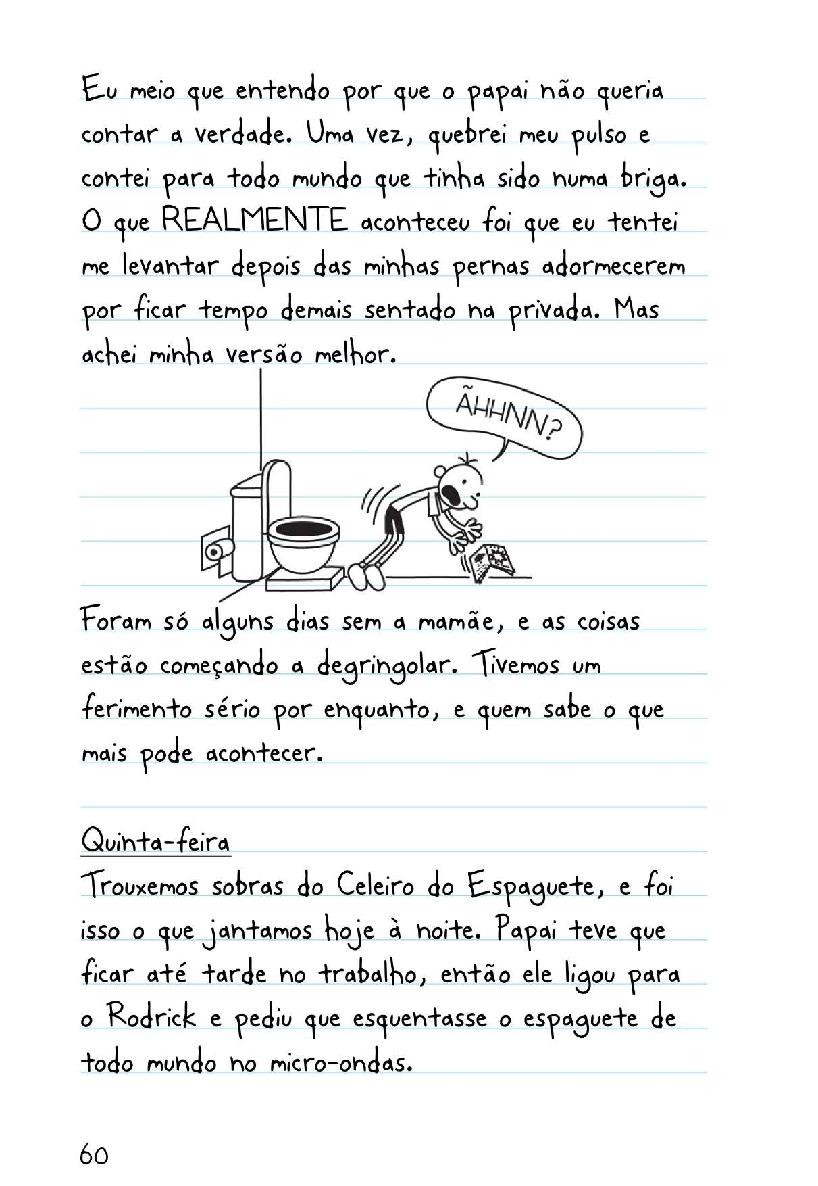 Eu meio que entendo por que o papai não queria
contar a verdade. Uma vez, quebrei meu pulso e
contei para todo mundo que tinha sido numa briga.
O que REALMENTE aconteceu foi que eu tentei
me levantar depois das minhas pernas adormecerem
por ficar tempo demais sentado na privada. Mas
achei minha versão melhor.
ÃHHNN?
Foram só alguns dias sem a mamãe, e as coisas
estão começando a degringolar. Tivemos um
ferimento sério por enquanto, e quem sabe o que
mais pode acontecer.
Quinta-feira
Trouxemos sobras do Celeiro do Espaguete, e foi
isso o que jantamos hoje à noite. Papai teve que
ficar até tarde no trabalho, então ele ligou para
o Rodrick e pediu que esquentasse o espaguete de
todo mundo no micro-ondas.
60